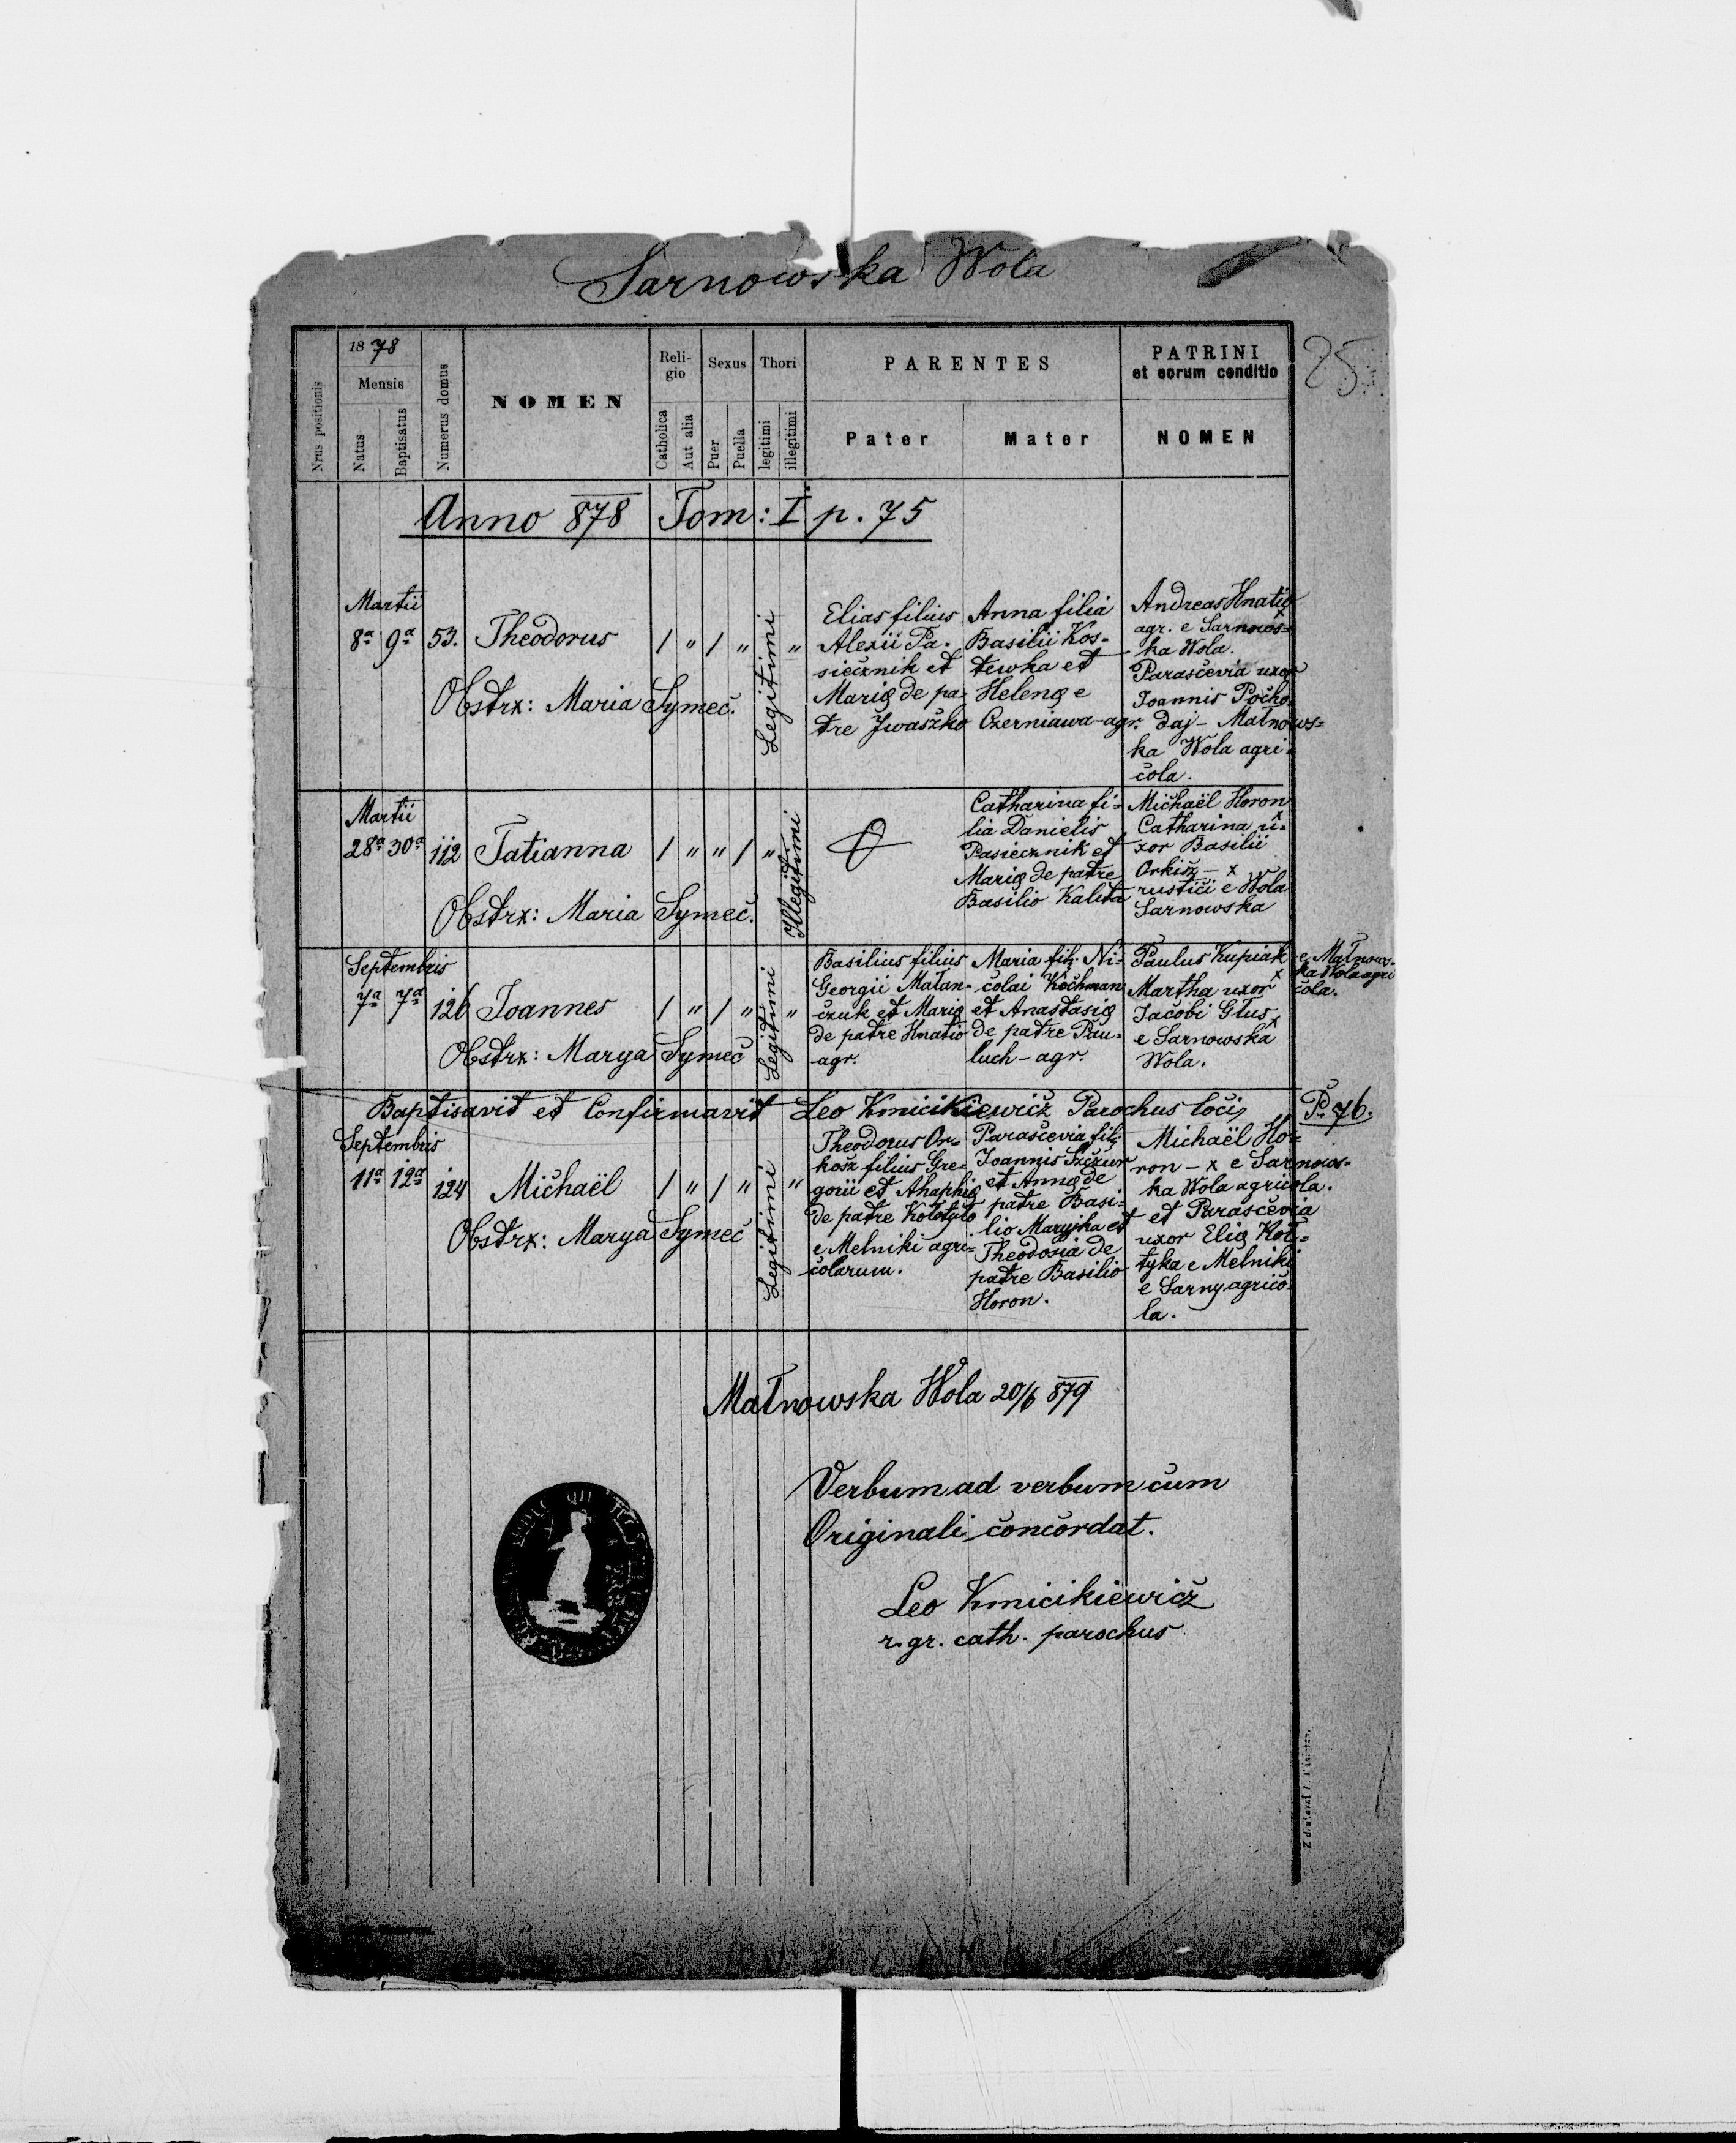 Sarnowska Wola
25.
Nrus positionis
1878
Mensis
Natus
Baptisatus
Numerus domus
NOMEN
Reli-
gio
Catholica
Aut alia
Sexus
Puer
Puella
Thori
legitimi
illegitimi
PARENTES
Pater
Mater
PATRINI
et eorum conditio
NOMEN
Anno 878 Tom: I p. 75
Martii
8ª 9ª 53. Theodorus / " / " Legitimi "
Obstrx: Maria Symeč.
Elias filius
Alexii Pa-
siečznik et
Marię de pa-
tre Jwaszko
Anna filia
Basilii Kos-
tewka et
Helenę e
Czerniawa-agr.
Andreas Hnatio
x
agr. e Sarnows-
ka Wola.
Parasčevia uxor
Joannis Počho-
daj - Małnows-
ka Wola agri-
čola.
Martii
28ª 30ª 112 Tatianna / " " / " Illegitimi
Obstrx: Maria Symeč.
Catharina fi-
lia Danielis
Pasiecznik et
Marię de patre
Basilio Kalita
Mičhaël Horon
x
Catharina u-
xor Basilii
Orkisz - x
rustiči e Wola
Sarnowska
Septembris
7ª 7ª 126 Joannes / " / " Legitimi "
Obstrx: Marya Symeč
Basilius filius
Georgii Małan-
čzuk et Marię
de patre Hnatio
-agr.
Maria fil: Ni-
čolai Kočhman
et Anastasię
de patre Pau-
luch - agr.
Paulus Kupiak
x
Martha uxor
Jačobi Głus x
e Sarnowska
Wola.
e Małnows-
ka Wola agri
čola.
Baptisavit et Confirmavit Leo Kmicikiewicž Paročhus loči,
P. 76.
Septembris
11ª 12ª 124 Mičhaël / " / " Legitimi "
Obstrx: Marya Symeč
Theodorus Or-
kosz filius Gre-
gorii et Ahaphię
de patre Kołotyło
e Melniki agri-
čolarum.
Parasčevia fil:
Joannis Szčzur
et Annę de
patre Basi-
lio Maryjka et
Theodosia de
patre Basilio
Horon.
Mičhaël Ho-
ron - x e Sarnows-
ka Wola agričola.
et Parasčevia
uxor Elię Koł-
tyka e Melniki
e Sarny agričo-
la.
Małnowska Wola 20/6 879
Verbum ad verbum čum
Originali čončordat.
Leo Kmicikiewicž
r. gr. cath. parochus